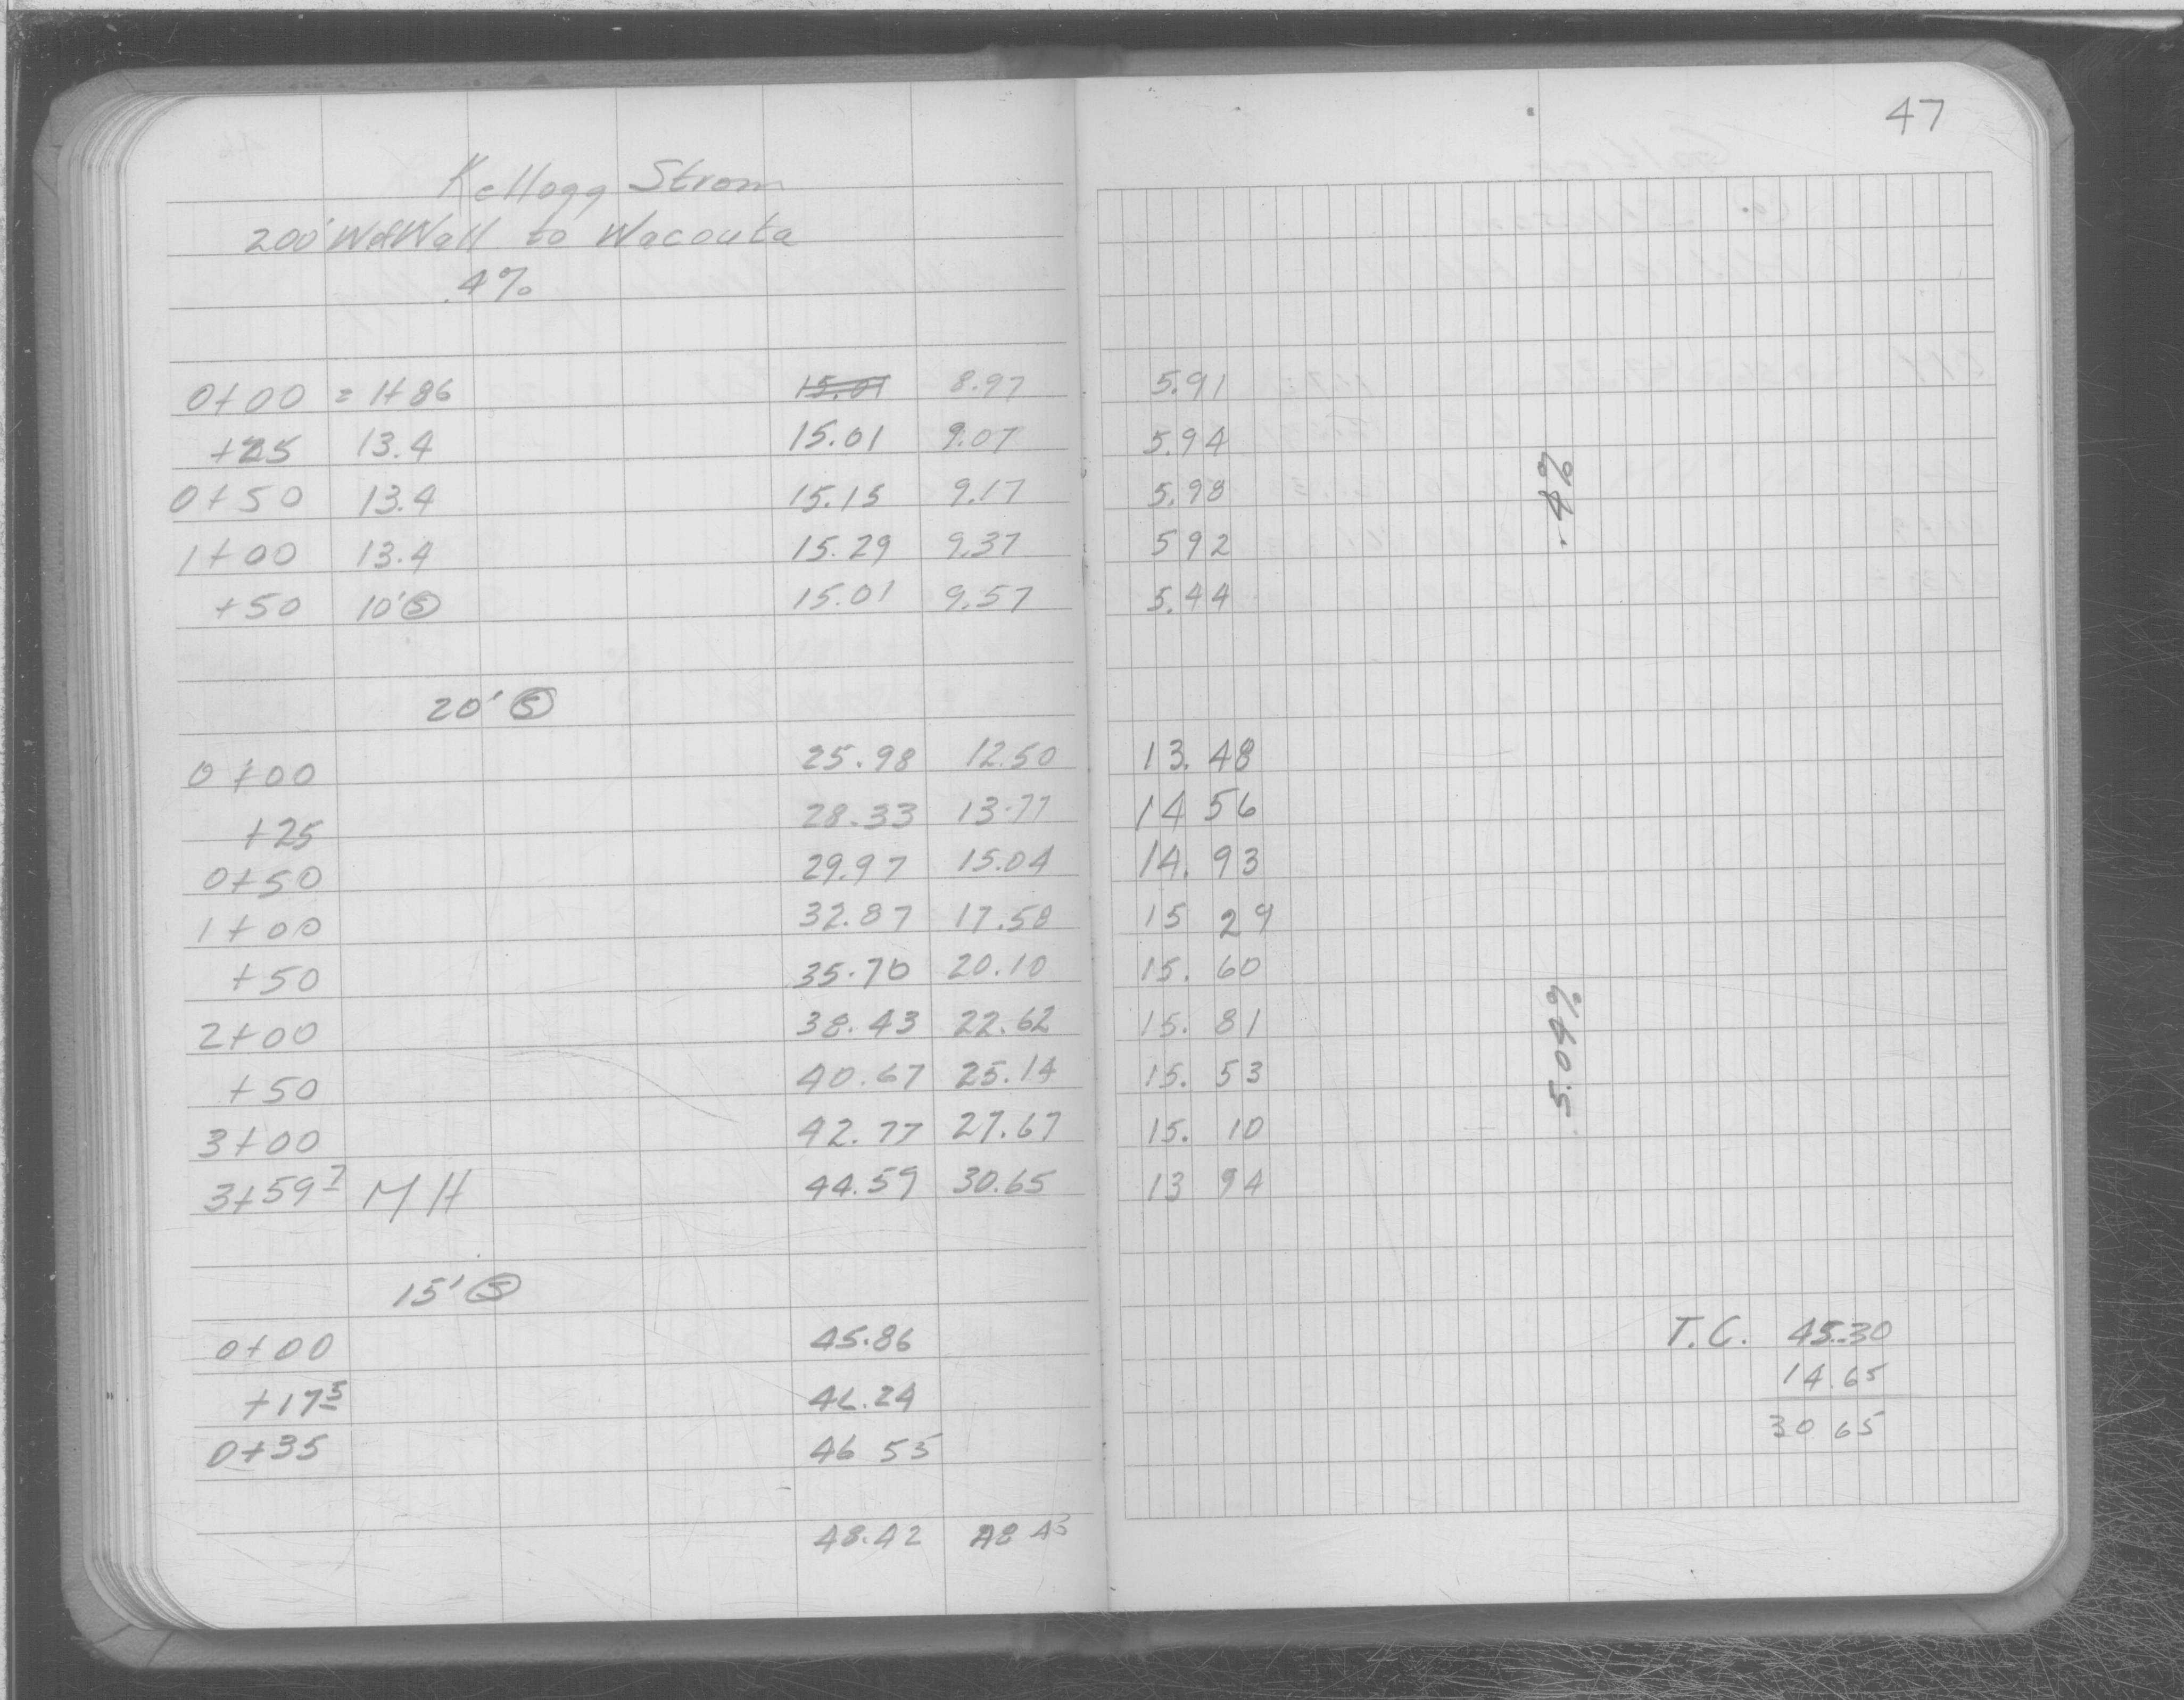 47
Kellogg Strom
200' W of Wall to Wacouta
.4%
0+00 = 1+86 15.01 8.97 5.91
+25 13.4 15.01 9.07 5.94
0+50 13.4 15.15 9.17 5.98
1+00 13.4 15.29 9.37 5 92
+50 10' Ⓢ 15.01 9.57 5.44
.4%
20' Ⓢ
0+00 25.98 12.50 13.48
+25 28.33 13.77 14 56
0+50 29.97 15.04 14.93
1+00 32.87 17.58 15 29
+50 35.70 20.10 15.60
2+00 38.43 22.62 15.81
+50 40.67 25.14 15.53
3+00 42.77 27.67 15.10
3+59 7 MH 44.59 30.65 13 94
5.04%
15' Ⓢ
0+00 45.86 T.C. 45.30
+17 5 46.24 14.65
0+35 46 55 30 65
48.42 48 43